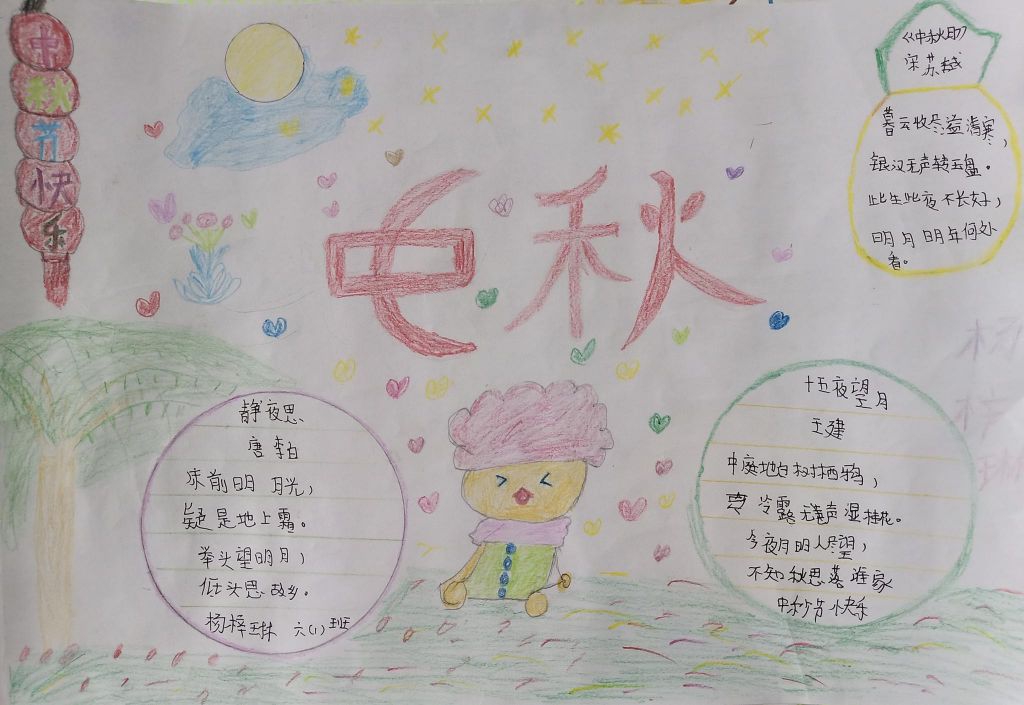 中秋节快乐
中秋
《中秋月》
宋 苏轼
暮云收尽溢清寒，
银汉无声转玉盘。
此生此夜不长好，
明月明年何处
看。
静夜思
唐 李白
床前明月光，
疑是地上霜。
举头望明月，
低头思故乡。
杨梓琳 六(1)班
十五夜望月
王建
中庭地白树栖鸦，
冷露无声湿桂花。
今夜月明人尽望，
不知秋思落谁家
中秋节快乐